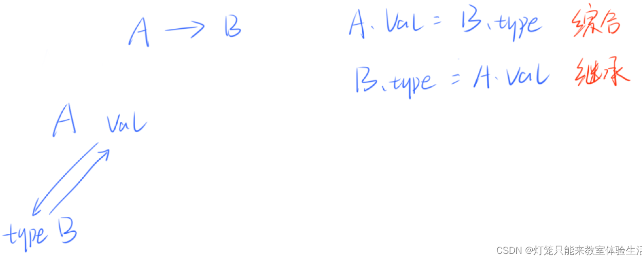 A → B
A.val = B.type 综合
B.type = A.val 继承
A val
type B
CSDN @灯笼只能来教室体验生活